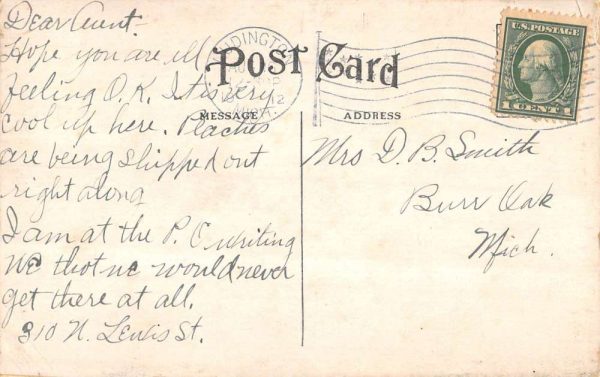 Dear Aunt.
Hope you are all
feeling O.K. It is very
cool up here. Peaches
are being shipped out
right along
I am at the P. O writing
We thot we would never
get there at all.
310 N. Lewis St.
Post Card
MESSAGE
ADDRESS
LUDINGTON
12
MICH.
U.S. POSTAGE
1 CENT 1
Mrs D. B. Smith
Burr Oak
Mich.